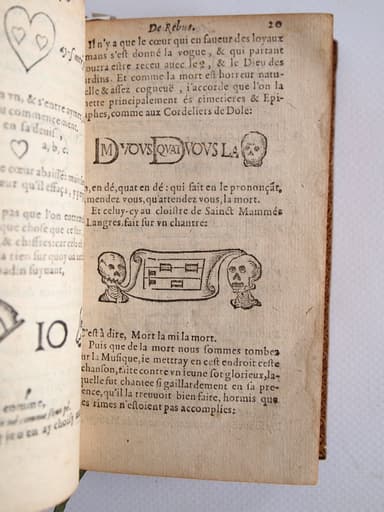 De Rebus. 20
Il n'y a que le cœur qui en faueur des loyaux
mans s'est donné la vogue, & qui partant
ourra estre receu auec le 2, & le Dieu des
ardins. Et comme la mort est horreur natu-
elle & assez cogneuë, i'accorde que l'on la
nette principalement és cimetieres & Epi-
aphes, comme aux Cordeliers de Dole:
M VOUS QVAT VVOVS LA
, en dé, quat en dé: qui fait en le prononçāt,
mendez vous, qu'attendez vous, la mort.
Et celuy-cy au cloistre de Sainct Mammés
Langres, fait sur vn chantre:
'est à dire, Mort la mi la mort.
Puis que de la mort nous sommes tombez
ur la Musique, ie mettray en cest endroit ceste
chanson, faite contre vn ieune sot glorieux, la-
quelle fut chantee si gaillardement en sa pre-
ence, qu'il la treuuoit bien faire, hormis que
es rimes n'estoient pas accomplies:
vn, & s'entre
commencement,
en sa deuise,
a, b, c.
cœur abaissé:
sieur qu'il effaça,
pas que l'on
que chose que
& chiffres: car
a rien sur quoy
badin suyuant,
IO